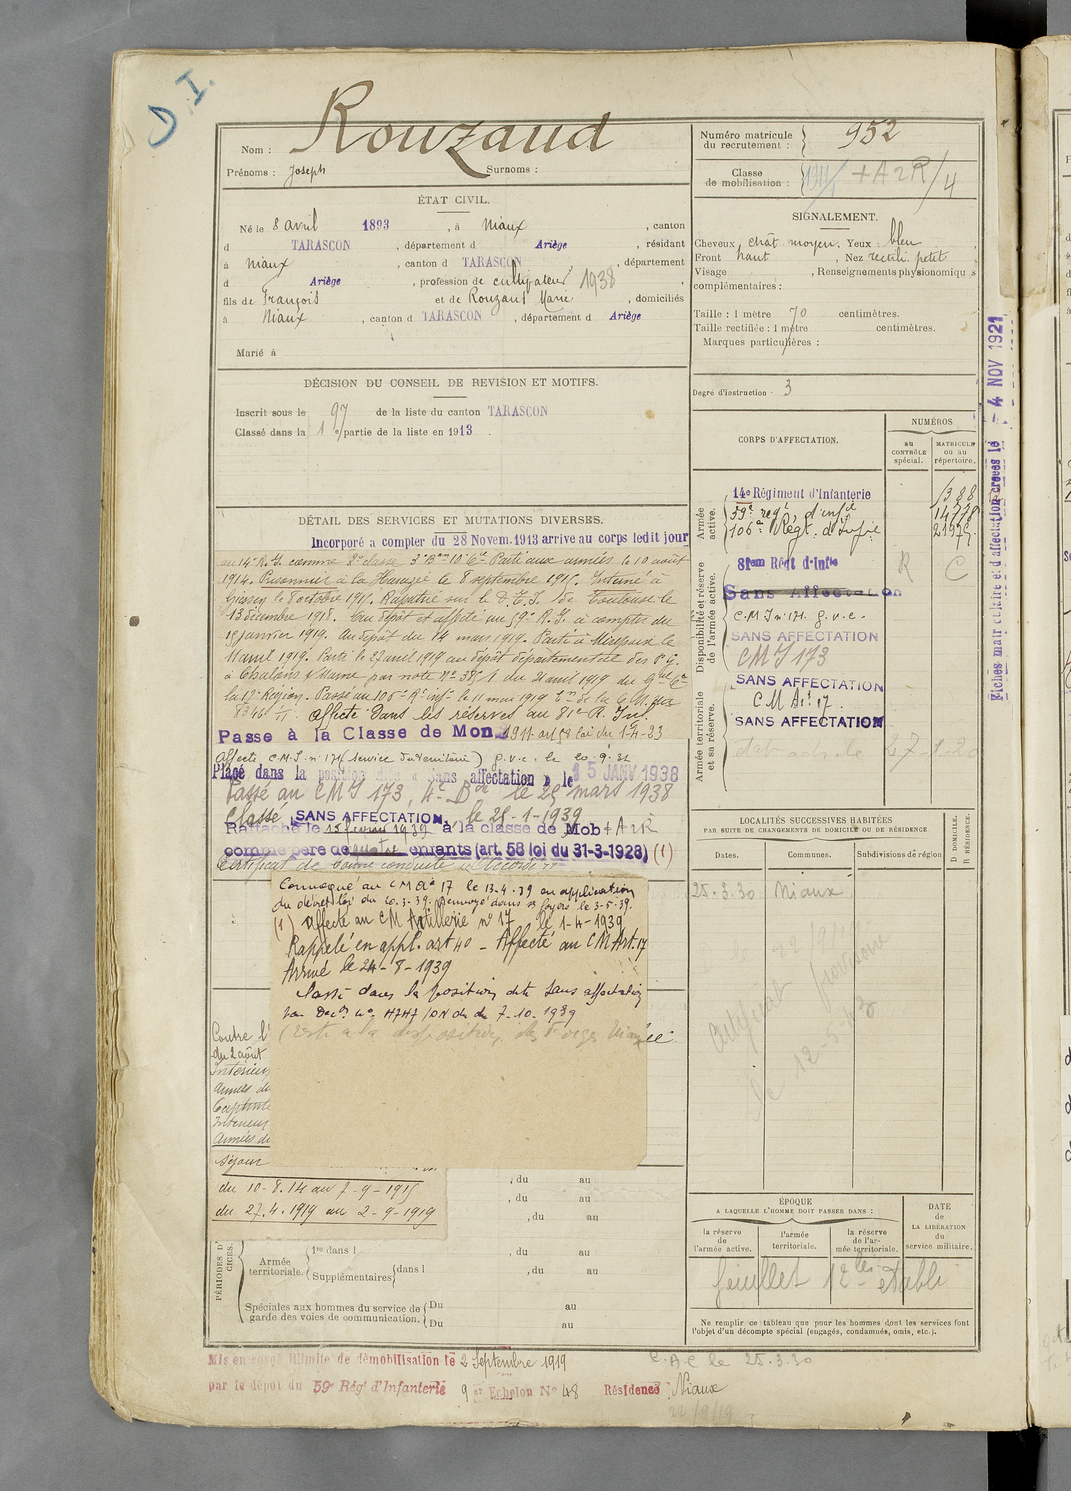 D I.
Nom : Rouzaud
Prénoms : Joseph Surnoms :
Numéro matricule du recrutement : 952
Classe de mobilisation : + A2R/4
ÉTAT CIVIL.
Né le 8 avril 1893, à Niaux, canton
d TARASCON, département d Ariège, résidant
à Niaux, canton d TARASCON, département
d Ariège, profession de cultivateur 1938
fils de François et de Rouzaud Marie, domiciliés
à Niaux, canton d TARASCON, département d Ariège
Marié à
SIGNALEMENT.
Cheveux chât moyen. Yeux bleu
Front haut, Nez rectil. petit
Visage, Renseignements physionomiqu s
complémentaires :
Taille : 1 mètre 70 centimètres.
Taille rectifiée : 1 mètre centimètres.
Marques particulières :
Degré d'instruction - 3
DÉCISION DU CONSEIL DE REVISION ET MOTIFS.
Inscrit sous le 97 de la liste du canton TARASCON
Classé dans la 1e partie de la liste en 1913.
DÉTAIL DES SERVICES ET MUTATIONS DIVERSES.
Incorporé a compter du 28 Novem. 1913 arrive au corps ledit jour
au 14e R.I. comme 2e classe. Parti aux armées le 10 août
1914. Prisonnier à la le 8 septembre 1915. Interné à
Giessen le 8 octobre 1915. Rapatrié sur le D.T.I. de Toulouse le
13 décembre 1918. Au dépôt et affecté au 59e R.I. à compter du
janvier 1919. Au dépôt du 14 mars 1919. Parti à Mirepoix le
avril 1919. Parti le 27 avril 1919 au dépôt départemental des P.G.
à Chalons s/ Marne par note No du avril 1919 du
la 17e Région. Passé au 106e Rt inf. le 11 mai 1919
Affecté dans les réserves au 81e R. Inf.
Passé à la Classe de Mob. 1911. art 58 loi du 1-4-23
Affecté C.M.I. n° 171 (service du territoire) g.v.c. le 20.9.31
Placé dans la position dite « Sans affectation » le 15 JANV 1938
Passé au CMI 173, 4e Bon le 25 mars 1938
Classé SANS AFFECTATION, le 25-1-1939
Rattaché le 15 février 1939 à la classe de Mob + A2R
comme père de quatre enfants (art. 58 loi du 31-3-1928) (1)
Certificat de bonne conduite "Accordé"
Convoqué au CM Aie 17 le 13-4-39 en application
du décret loi du 20-3-39. Renvoyé dans ses foyers le 3-5-39.
(1) Affecté au CM Artillerie n° 17 le 1-4-1939
Rappelé en appl. art 40 - Affecté au CM Art. 17
Arrivé le 24-8-1939
Classé dans la position dite sans affectation
du 7-10-1939
(reste à la disposition des
Contre l'
du 2 août
Intérieur
Armées du
Captivité
Intérieur
Armées du
Séjour
du 10-8.14 au 7-9-1915
du 27.4.1919 au 2-9-1919
, du au
, du au
, du au
PÉRIODES D'
CICES.
Armée territoriale.
1re dans l , du au
Supplémentaires dans l , du au
Spéciales aux hommes du service de garde des voies de communication.
Du au
Du au
CORPS D'AFFECTATION.
NUMÉROS
au CONTRÔLE spécial.
MATRICULE ou au répertoire.
Armée active.
14e Régiment d'Infanterie 1388
59e regt d'infie 14778
106e Régt. d'Infie 21975
Disponibilité et réserve de l'armée active.
81em Régt d'Infie R C
Sans Affectation
C.M.I n° 171. g.v.c.
SANS AFFECTATION
CMI 173
SANS AFFECTATION
Armée territoriale et sa réserve.
CM Aie 17.
SANS AFFECTATION
Fiches matriculaire et d'affectation créées le - 4 NOV 1921
LOCALITÉS SUCCESSIVES HABITÉES
PAR SUITE DE CHANGEMENTS DE DOMICILE OU DE RÉSIDENCE
D DOMICILE. R RÉSIDENCE.
Dates. Communes. Subdivisions de région
25.3.30 Niaux
provisoire
le 12-5-
ÉPOQUE
A LAQUELLE L'HOMME DOIT PASSER DANS :
la réserve de l'armée active.
l'armée territoriale.
la réserve de l'armée territoriale.
DATE de LA LIBÉRATION du service militaire.
feuillet 12 bis établi
Ne remplir ce tableau que pour les hommes dont les services font
l'objet d'un décompte spécial (engagés, condamnés, omis, etc.).
Mis en congé illimité de démobilisation le 2 Septembre 1919
par le dépôt du 59e Régt d'Infanterie 9e Echelon No 48 Résidence Niaux
C.A.C le 25.3.30
22/9/19